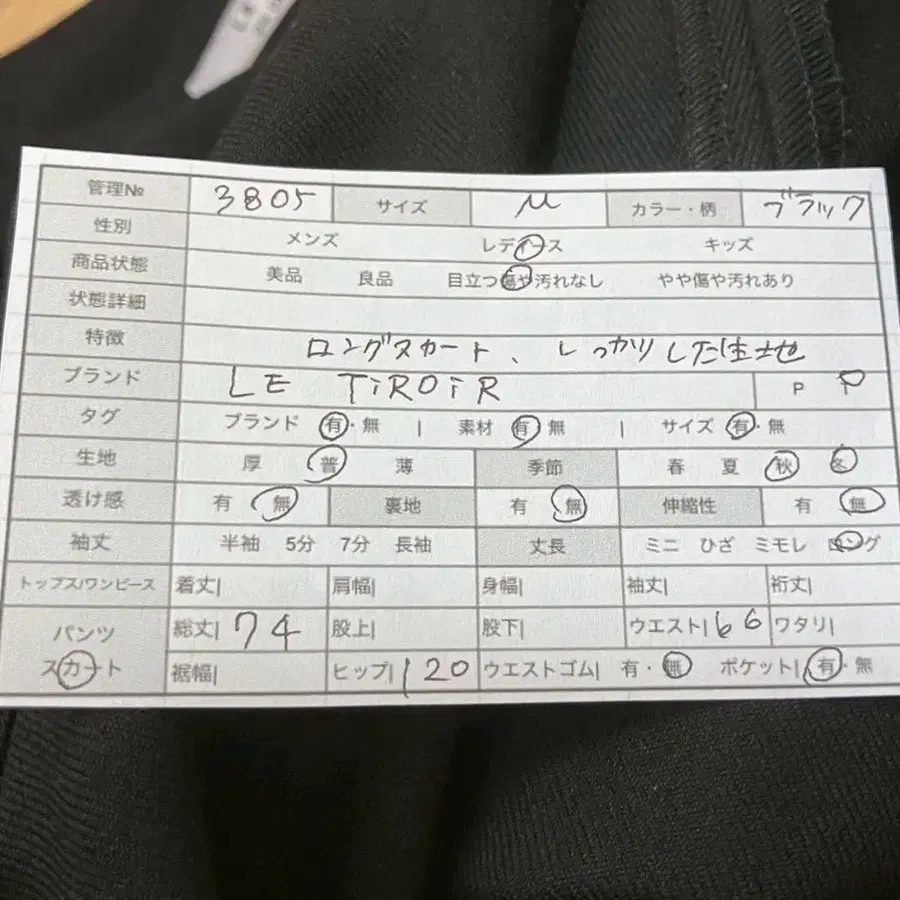 管理№ 3805 サイズ M カラー・柄 ブラック
性別 メンズ レディース キッズ
商品状態 美品 良品 目立つ傷や汚れなし やや傷や汚れあり
状態詳細
特徴 ロングスカート、しっかりした生地
ブランド LE TiROiR P
タグ ブランド 有・無 | 素材 有 無 | サイズ 有・無
生地 厚 普 薄 季節 春 夏 秋 冬
透け感 有 無 裏地 有 無 伸縮性 有 無
袖丈 半袖 5分 7分 長袖 丈長 ミニ ひざ ミモレ ロング
トップス/ワンピース 着丈| 肩幅| 身幅| 袖丈| 裄丈|
パンツ 総丈| 74 股上| 股下| ウエスト| 66 ワタリ|
スカート 裾幅| ヒップ| 120 ウエストゴム| 有・無 ポケット| 有・無